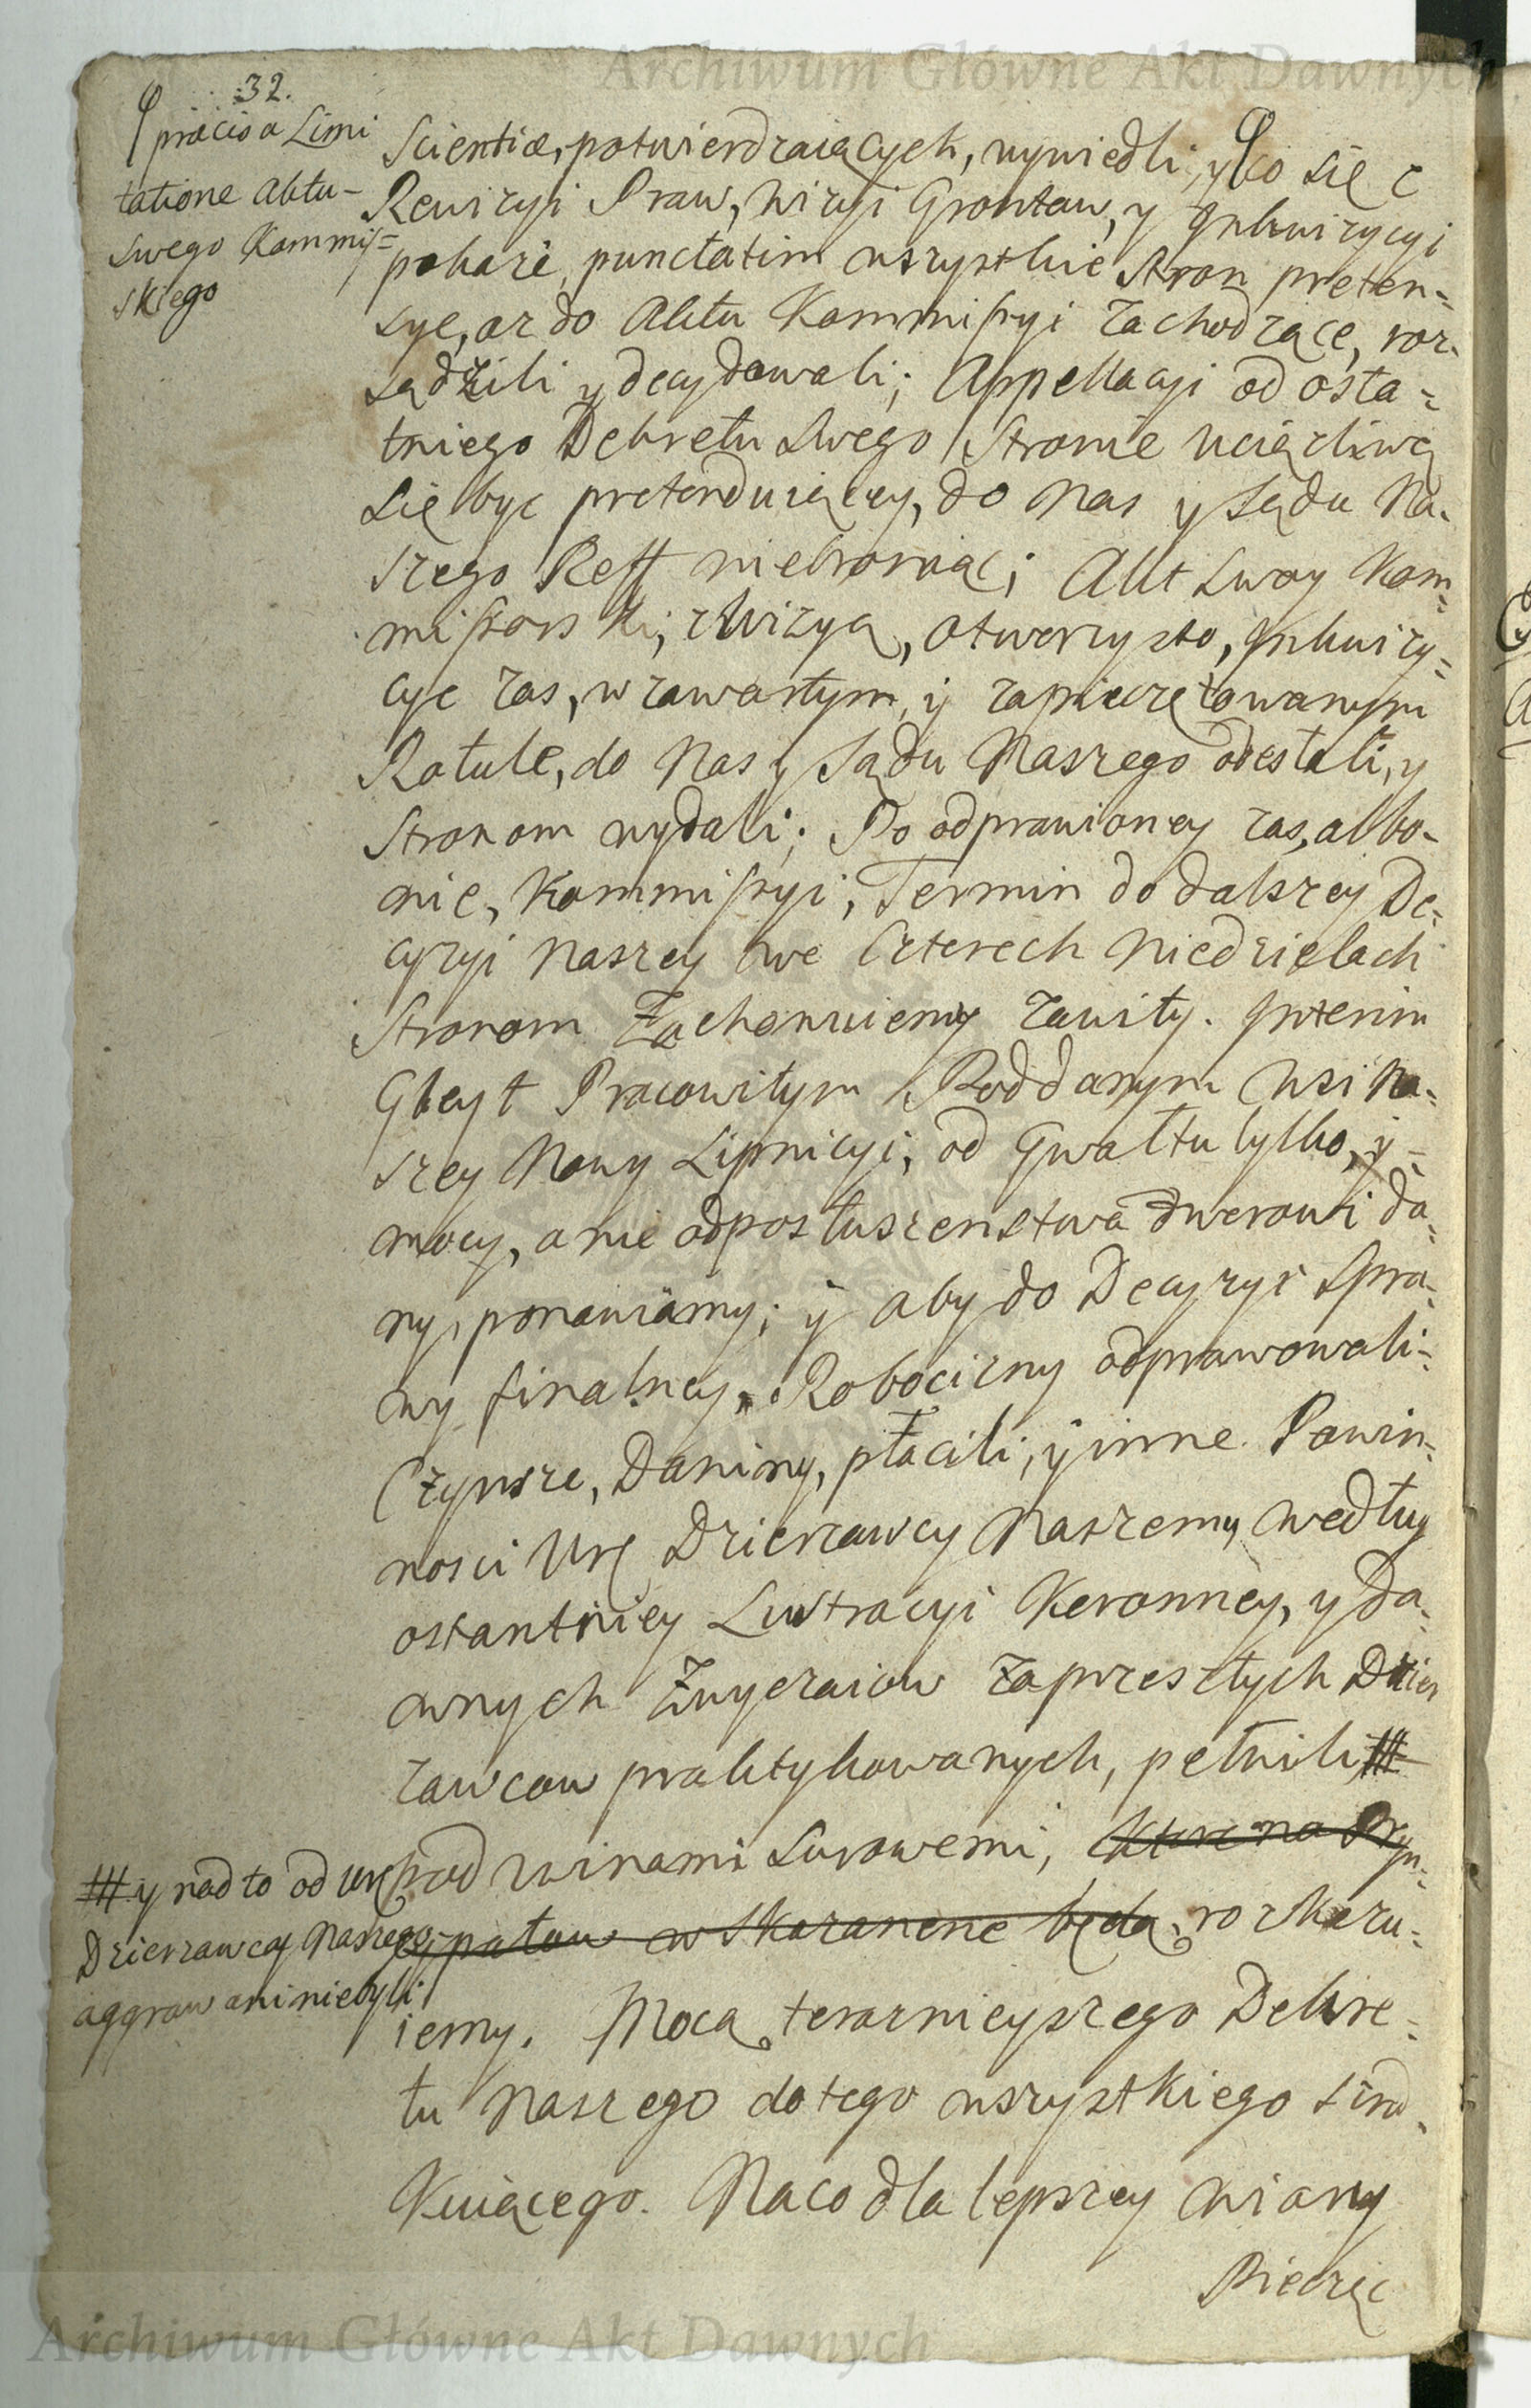 Archiwum Główne Akt Dawnych
32.
præcisa Limi
tatione Aktu
Swego Kommis=
skiego
Scientiæ, potwierdzaiących, wywiedli, y co się z
Rewizyi Praw, wizyi Grontow, y Inkwizycyi
pokaże, punctatim wszystkie Stron preten=
sye, az do Aktu Kommissyi zachodzące, roz=
sądzili y decydowali; Appellacyi od osta=
tniego Dekretu Swego Stronie uciązliwą
się byc pretenduiącey, do Nas y Sądu Na=
szego Reff niebroniąc; Akt Swoy Kom=
missars ki, z Wizyą, otworzysto, Inkwizy=
cye zas, w zawartym, y zapieczętowanym
Rotule, do Nas y Sądu Naszego odesłali, y
Stronom wydali; Po odprawioney zas, albo
nie, Kommissyi, Termin do dalszey De=
cyzyi Naszey we Czterech Niedzielach
Stronom Zachowuiemy zawity. Interim
Gleyt Pracowitym Poddanym Wsi Na=
szey Nowy Lipnicyi, od Gwałtu tylko, y
mocy, a nie od posłuszenstwa dworowi da=
ny, ponawiamy; y aby do Decyzyi Spra=
wy finalney, Robocizny odprawowali=
Czynsze, Daniny, płacili, y inne Powin=
nosci Ure Dzierzawcy Naszemu według
ostantniey Lustracyi Koronney, y Da=
wnych Zwyczaiow zaprzeszłych Dzier
zawcow praktykowanych, pełnili #
# y nad to od Ure
Dzierzawcy Naszego
aggrawani niebyli
pod winami Surowemi, ktore na Pryn=
cypałow wskaranene będą, rozkazu=
iemy. Mocą terarnieyszego Dekre=
tu Naszego do tego wszystkiego
Kuiącego. Naco dla lepszey wiary
Pieczęc
Archiwum Główne Akt Dawnych